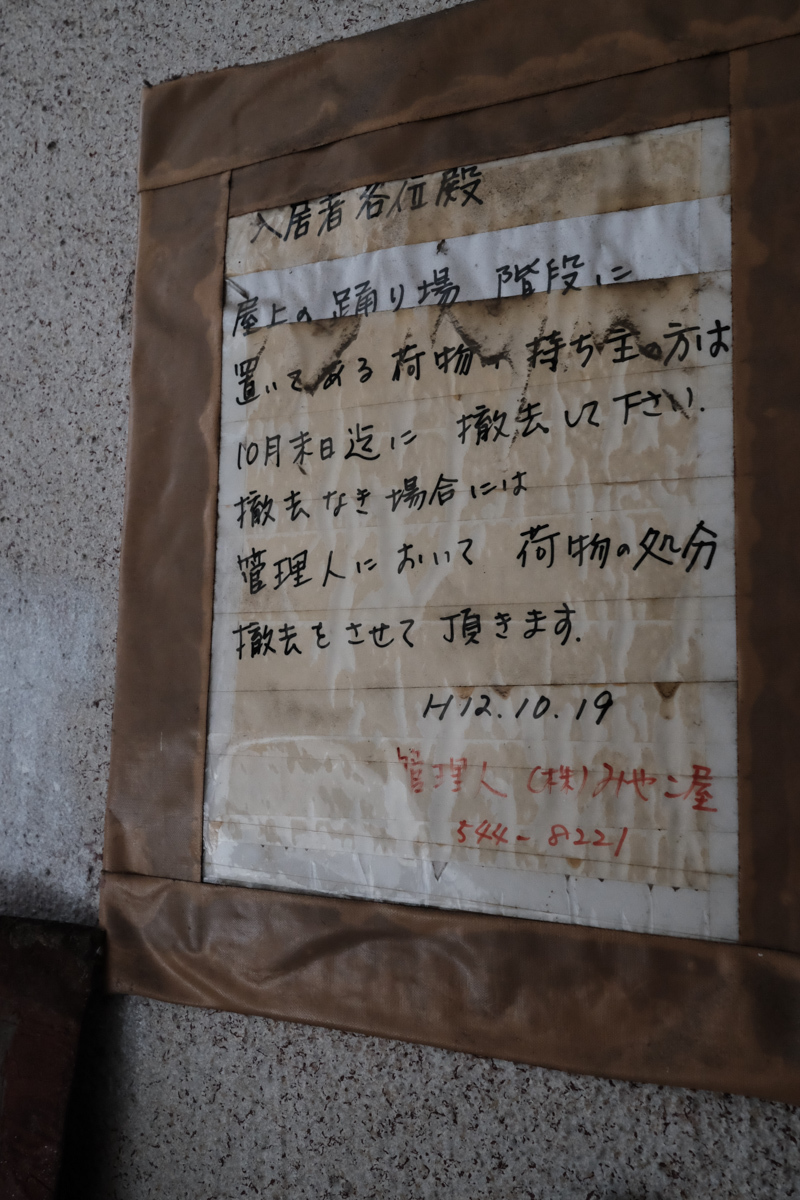 入居者各位殿
屋上の踊り場 階段に
置いてある荷物の持ち主の方は
10月末日迄に 撤去して下さい.
撤去なき場合には
管理人において 荷物の処分
撤去をさせて頂きます.
H12.10.19
管理人 (株)みやこ屋
544-8221